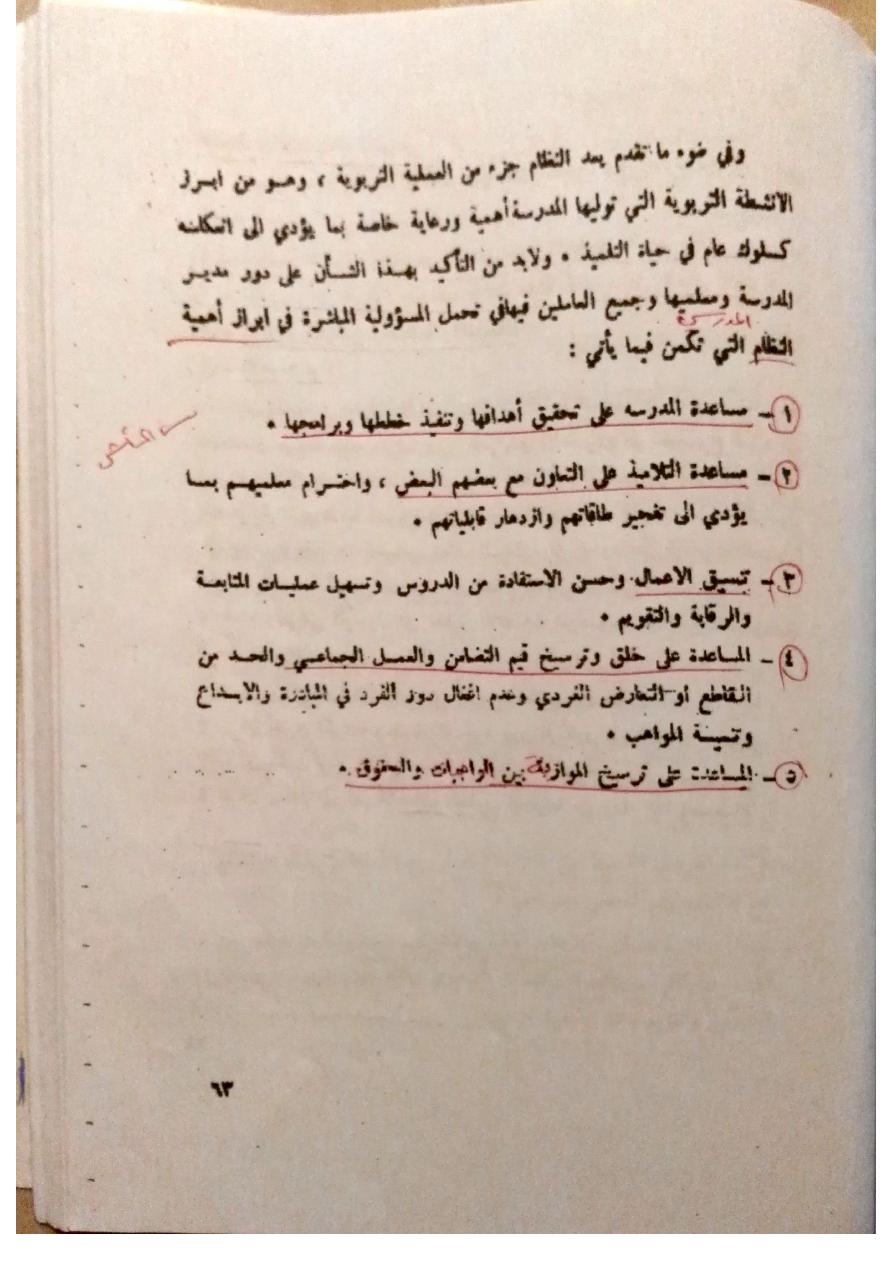 وفي ضوء ما تقدم يعد النظام جزء من العملية التربوية ، وهو من ابرز
الانشطة التربوية التي توليها المدرسة أهمية ورعاية خاصة بما يؤدي الى انعكاسه
كسلوك عام في حياة التلميذ . ولابد من التأكيد بهذا الشأن على دور مدير
المدرسة ومعلميها وجميع العاملين فيهافي تحمل المسؤولية المباشرة في ابراز أهمية
المدرسي
النظام التي تكمن فيما يأتي :
١ – مساعدة المدرسه على تحقيق أهدافها وتنفيذ خططها وبرامجها .
٢ – مساعدة التلاميذ على التعاون مع بعضهم البعض ، واحترام معلميهم بما
يؤدي الى تفجير طاقاتهم وازدهار قابلياتهم .
٣ – تنسيق الاعمال وحسن الاستفادة من الدروس وتسهيل عمليات المتابعة
والرقابة والتقويم .
٤ – المساعدة على خلق وترسيخ قيم التضامن والعمل الجماعي والحد من
القاطع أو التعارض الفردي وعدم اغفال دور الفرد في المبادرة والابداع
وتنمية المواهب .
٥ – المساعدة على ترسيخ الموازنة بين الواجبات والحقوق .
٦٣